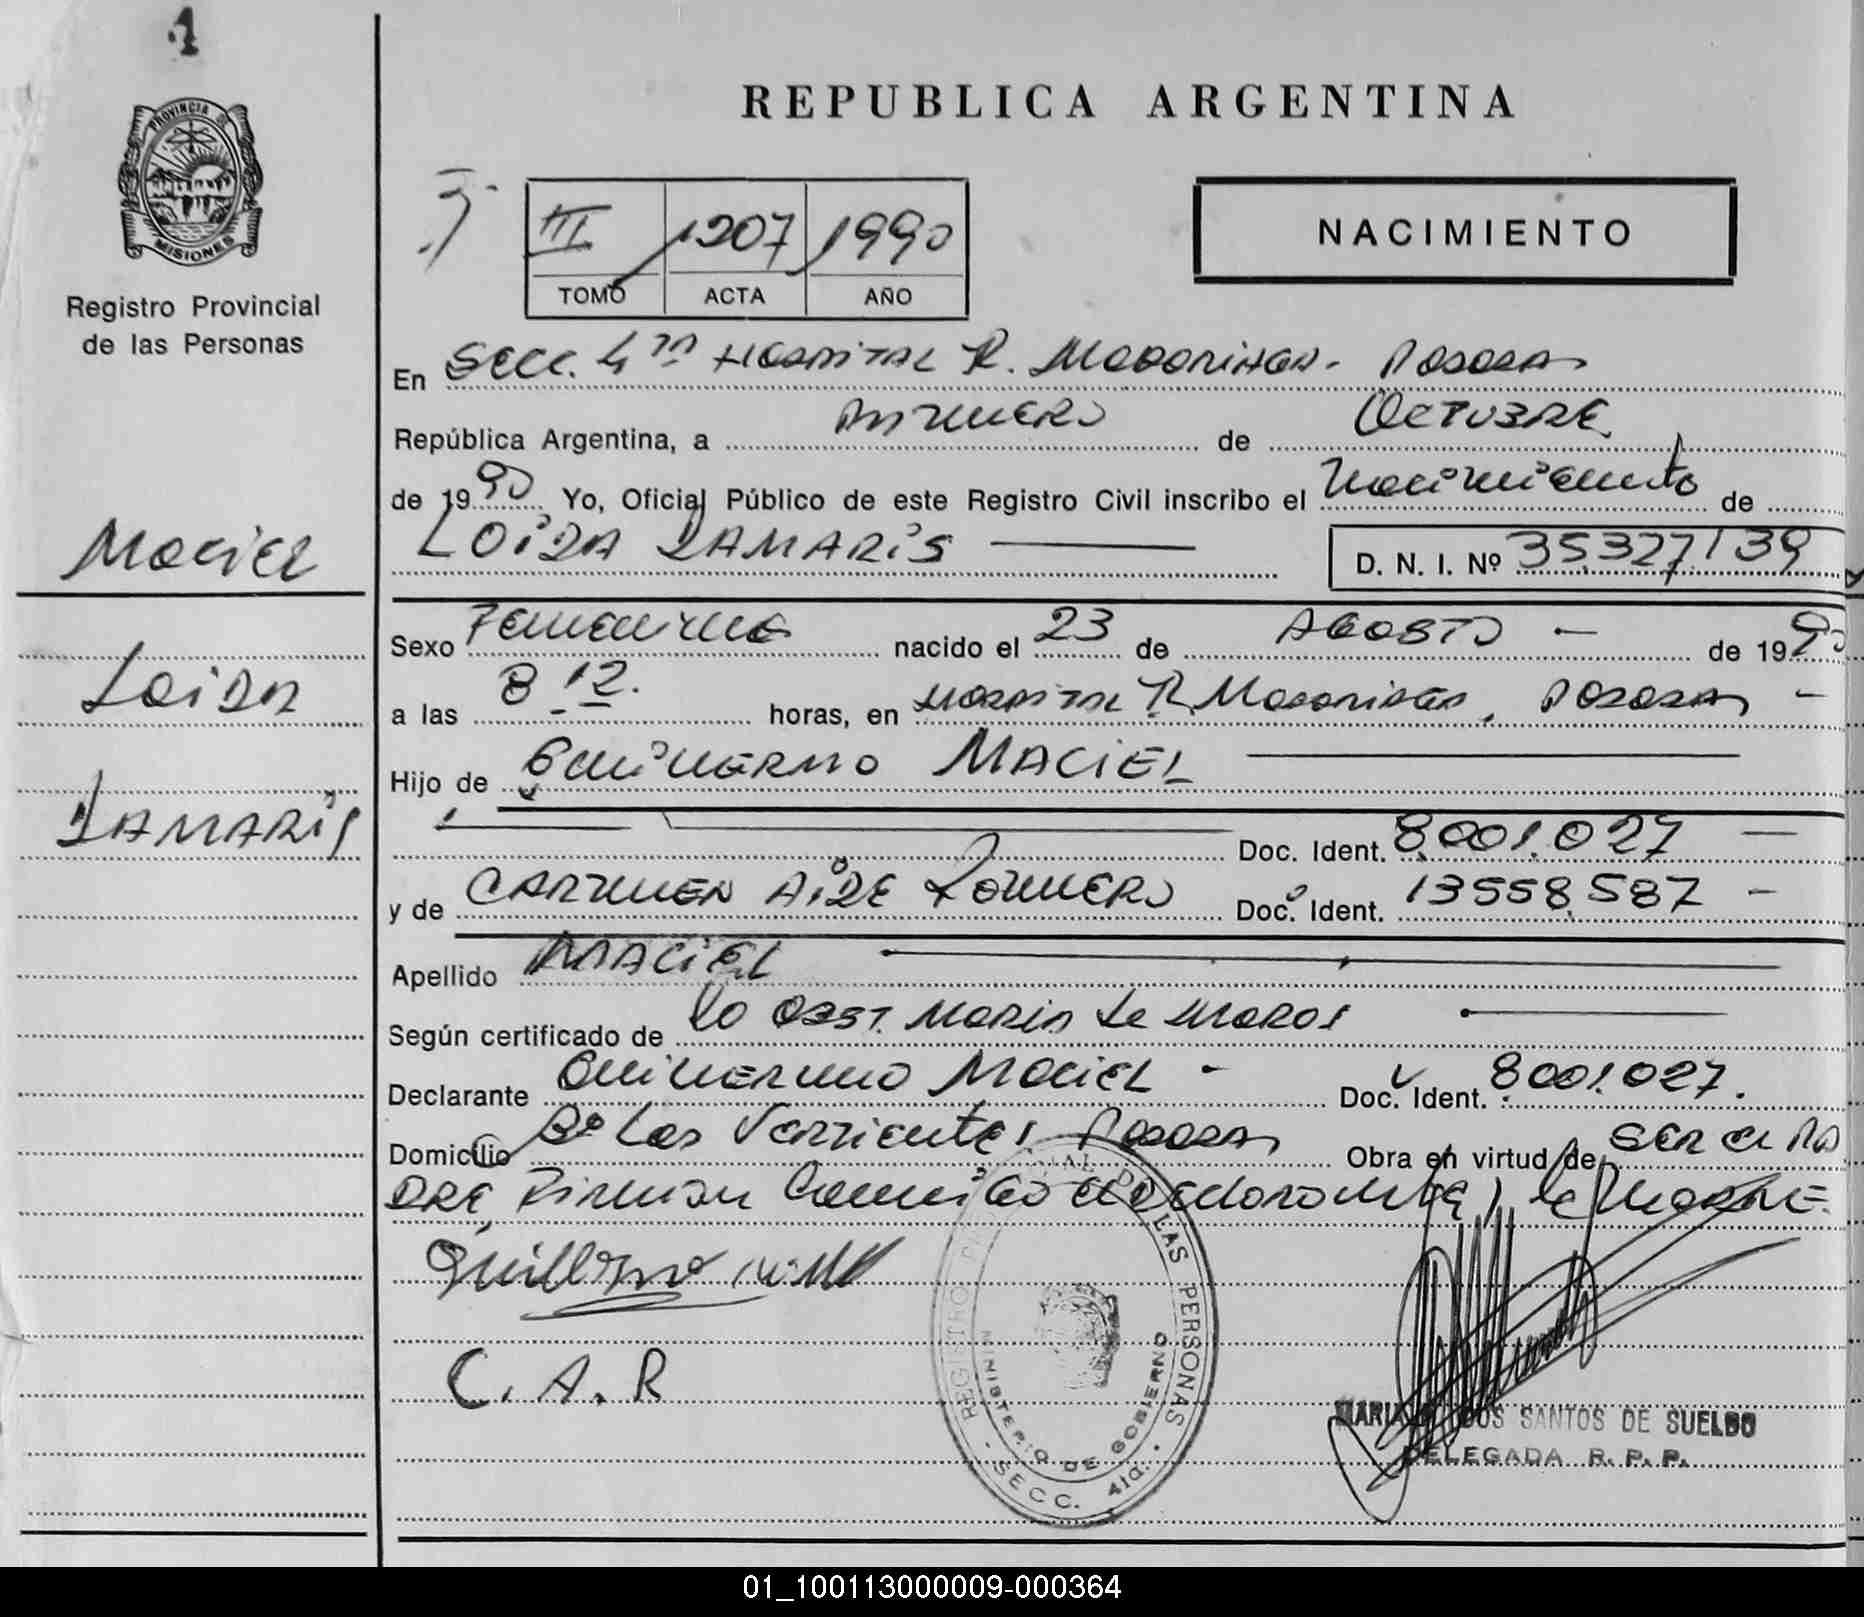 1
PROVINCIA DE
MISIONES
Registro Provincial
de las Personas
Maciel
Loida
Damaris
REPUBLICA ARGENTINA
III 1207 1990
TOMO ACTA AÑO
NACIMIENTO
En Secc. 4ta Hospital R. Madariaga - Posadas
República Argentina, a Primero de Octubre
de 1990 Yo, Oficial Público de este Registro Civil inscribo el Nacimiento de
LOIDA DAMARIS D. N. I. Nº 35.327.139
Sexo Femenino nacido el 23 de AGOSTO - de 1990
a las 8 12. horas, en Hospital R. Madariaga, Posadas -
Hijo de Guillermo MACIEL
Doc. Ident. 8.001.027 -
y de CARMEN AIDE ROMERO Doc. Ident. 13.558.587 -
Apellido MACIEL
Según certificado de la Obst. Maria de
Declarante Guillermo Maciel - Doc. Ident. 8.001.027.
Domicilio Bº Las Vertientes Posadas Obra en virtud de ser el pa
dre, Firman el declarante y la Madre.
Guillermo
C. A. R
REGISTRO PROVINCIAL DE LAS PERSONAS
MINISTERIO DE GOBIERNO
SECC. 4ta.
MARIA DOS SANTOS DE SUELDO
DELEGADA R. P. P.
01_100113000009-000364